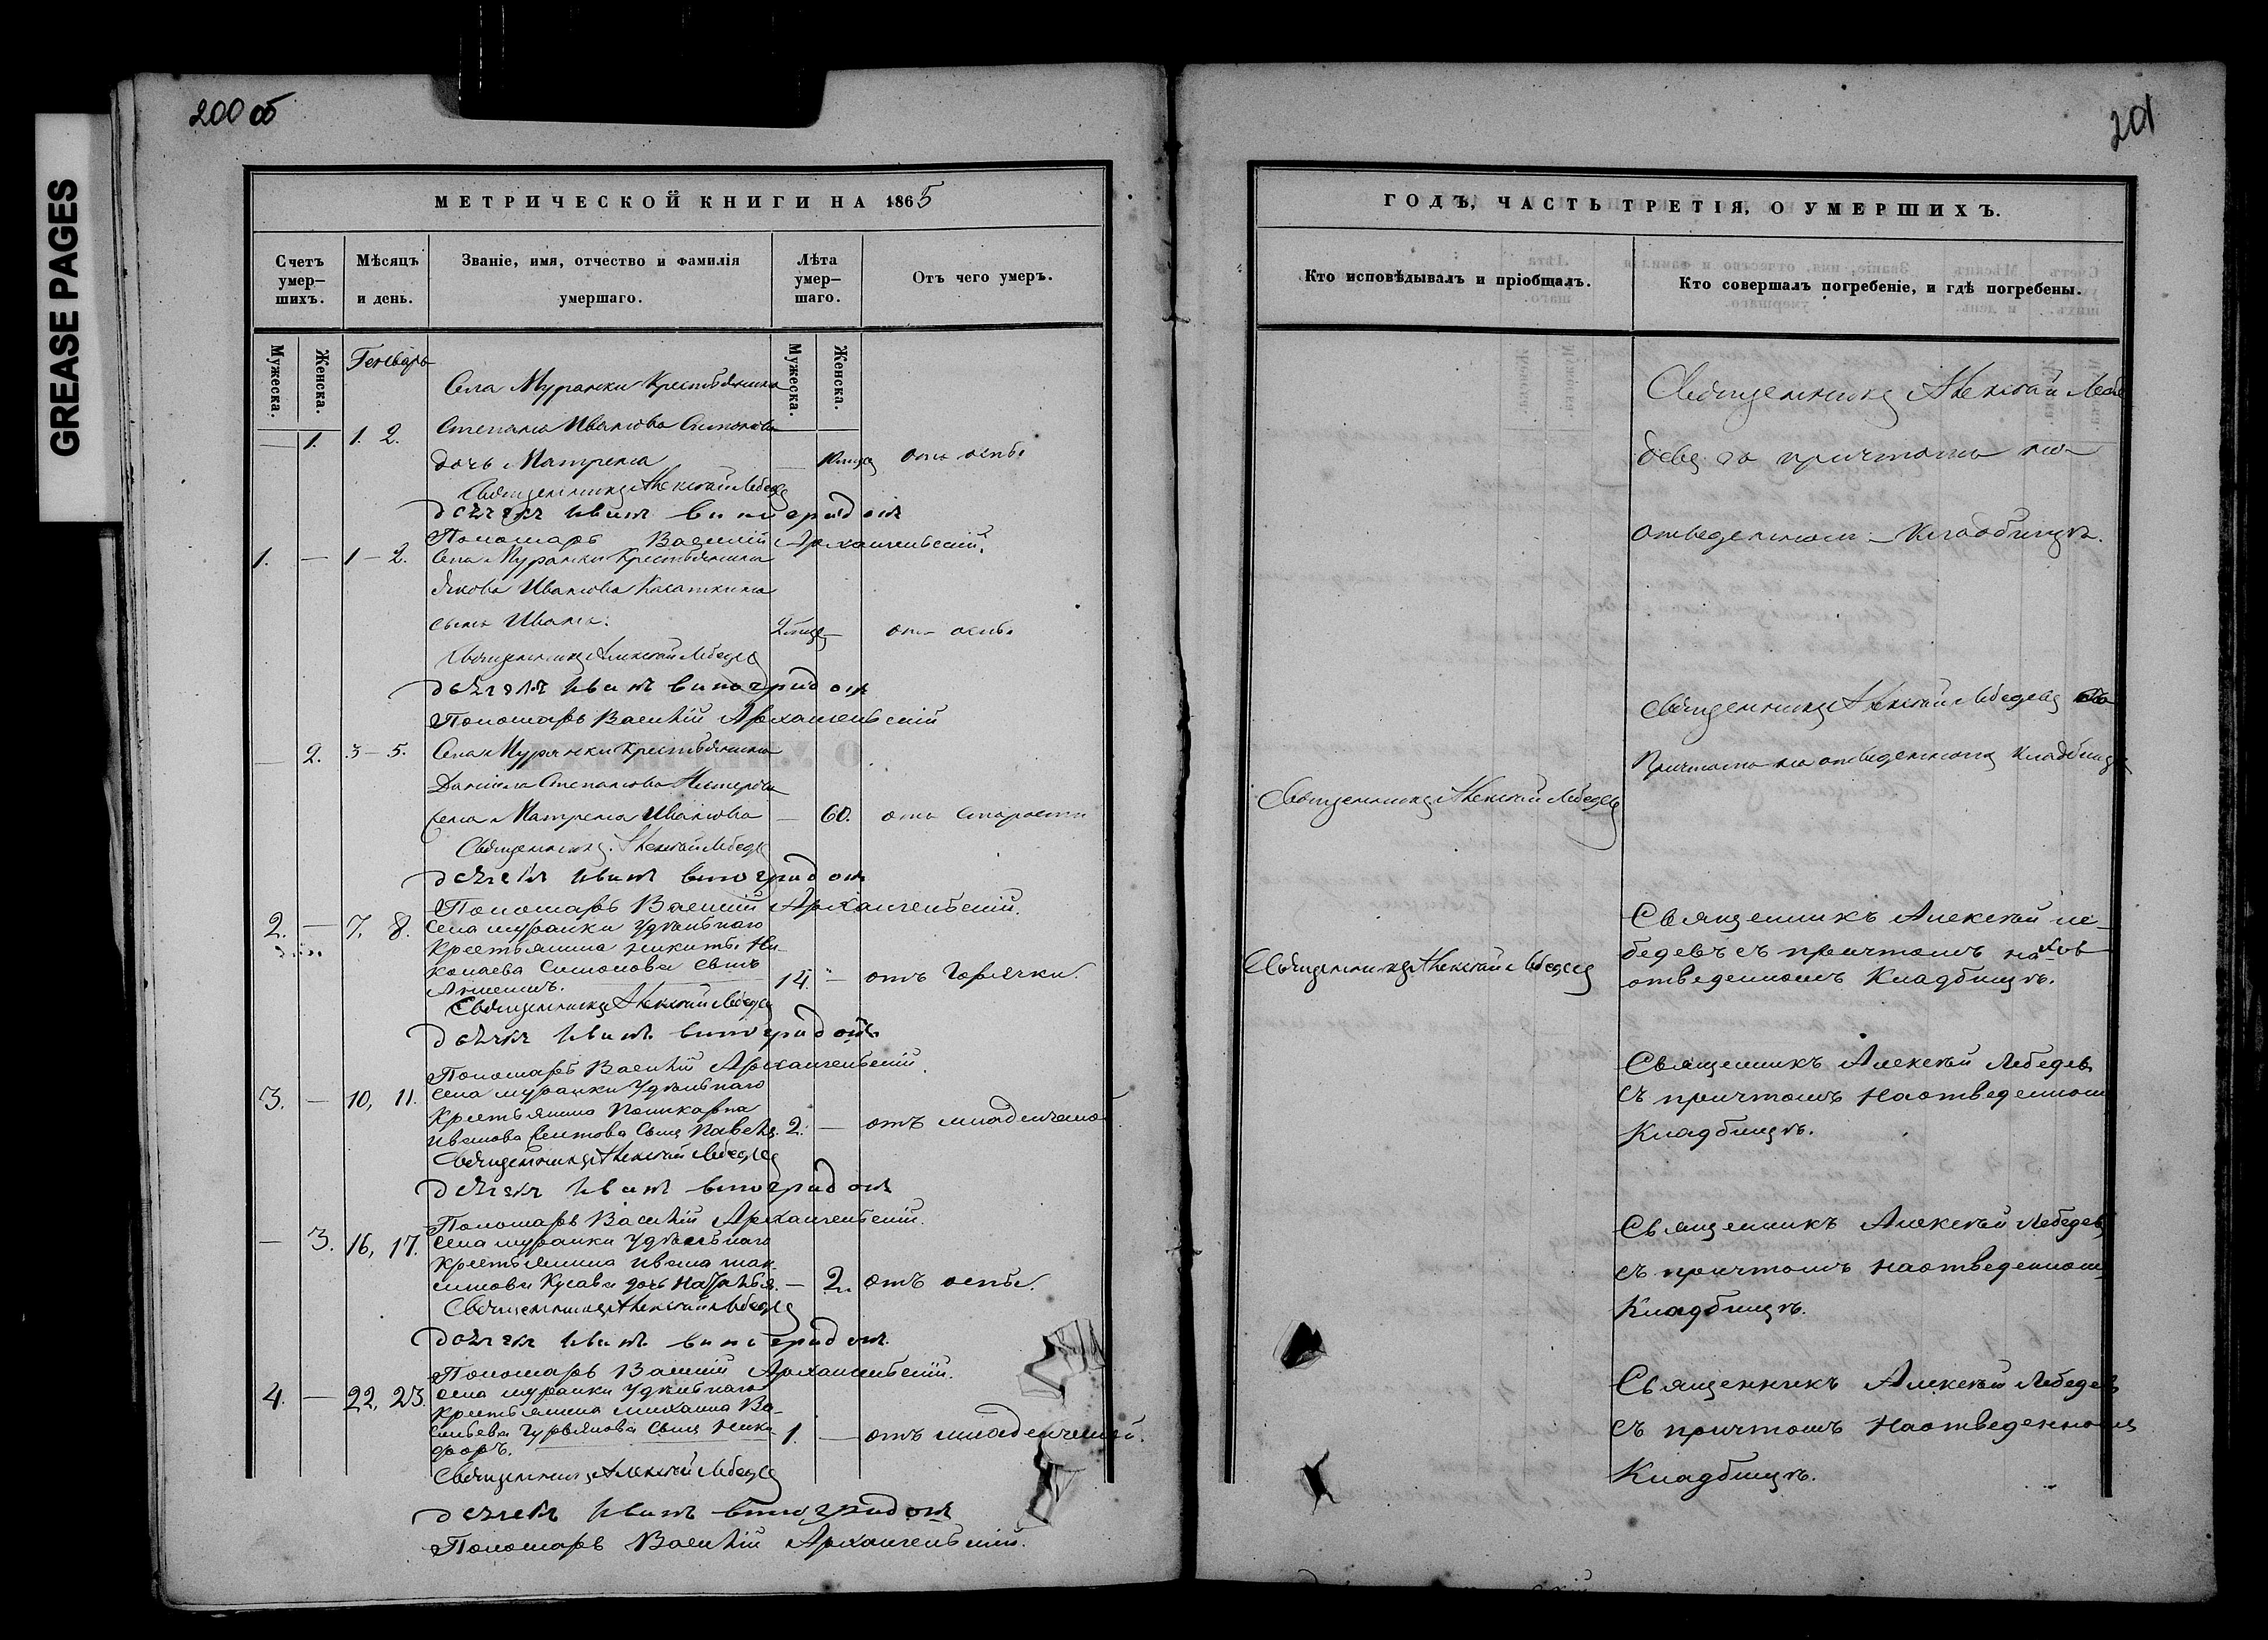 GREASE PAGES
200 об
МЕТРИЧЕСКОЙ КНИГИ НА 1865
Счетъ умер–шихъ.
Мѣсяцъ и день.
Званіе, имя, отчество и фамилія умершаго.
Лѣта умер–шаго.
Отъ чего умеръ.
Мужеска.
Женска.
Мужеска.
Женска.
Генварь
Села Муранки Крестьянина
1. 1. 2. Степана Иванова Симонова
дочь Матрена отъ оспы
Священникъ Алексѣй Лебедев
дьячекъ Иванъ виноградовъ
Пономарь Василій Архангельскій.
1. — 1 – 2. Села Муранки Крестьянина
Якова Иванова Касаткина
сынъ Иванъ. отъ оспы
Священникъ Алексѣй Лебедев
дьячекъ Иванъ виноградовъ
Пономарь Василій Архангельскій
— 2. 3 – 5. Села Муранки Крестьянина
Даніила Степанова
жена Матрена Иванова — 60. отъ старости
Священникъ Алексѣй Лебедев
дьячекъ Иванъ виноградовъ
Пономарь Василій Архангельскій.
2. — 7, 8. Села муранки Удѣльнаго
Крестьянина никиты Ни–
колаева Симонова сынъ
14. — отъ Горячки.
Священникъ Алексѣй Лебедев
дьячекъ Иванъ виноградовъ
Пономарь Василій Архангельскій.
3. — 10, 11. Села муранки Удѣльнаго
Крестьянина Поликарпа
Иванова сынъ Павелъ. 2. — отъ младенческой
Священникъ Алексѣй Лебедев
дьячекъ Иванъ виноградовъ
Пономарь Василій Архангельскій.
— 3. 16, 17. Села муранки Удѣльнаго
Крестьянина ивана мак
симова дочь Наталья. — 2. отъ оспы.
Священникъ Алексѣй Лебедев
дьячекъ Иванъ виноградовъ.
Пономарь Василій Архангельскій.
4. — 22, 23. села муранки Удѣльнаго
Крестьянина михаила Ва–
сильева Гурьянова сынъ Ники
форъ. 1. — отъ младенческой.
Священникъ Алексѣй Лебедев
дьячекъ Иванъ виноградовъ
Пономарь Василій Архангельскій.
201
ГОДЪ, ЧАСТЬ ТРЕТІЯ, О УМЕРШИХЪ.
Кто исповѣдывалъ и пріобщалъ.
Кто совершалъ погребеніе, и гдѣ погребены.
Священникъ Алексѣй Лебе
девъ съ причтомъ на
отведенномъ Кладбищѣ.
Священникъ Алексѣй Лебедевъ съ
Причтомъ на отведенномъ Кладбищѣ
Священникъ Алексѣй Лебедев
Священникъ Алексѣй ле–
бедевъ съ причтомъ на
отведенномъ Кладбищѣ.
Священникъ Алексѣй Лебедев
Священникъ Алексѣй Лебедев
съ причтомъ Наотведенном
Кладбищѣ.
Священникъ Алексѣй Лебедевъ
съ причтомъ наотведенном
Кладбищѣ.
Священникъ Алексѣй Лебедевъ
съ причтомъ Наотведенномъ
Кладбищѣ.